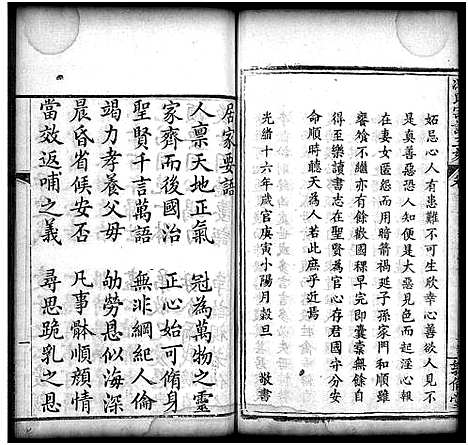 妬忌心人有患難不可生欣幸心善欲人見不
是真善惡恐人知便是大惡見色而起淫心報
在妻女匿怨而用暗箭禍延子孫家門和順雖
饔飧不繼亦有餘歡國稞早完即囊橐無餘自
得至樂讀書志在聖賢為官心存君國守分安
命順時聽天為人若此庶乎近焉
光緒十六年歲官庚寅小陽月穀旦
敬書
居家要語
人禀天地正氣 冠為萬物之靈
家齊而後國治 正心始可修身
聖賢千言萬語 無非綱紀人倫
竭力孝養父母 劬勞恩似海深
晨昏省候安否 凡事骵順顔情
當效返哺之義 尋思跪乳之恩
一